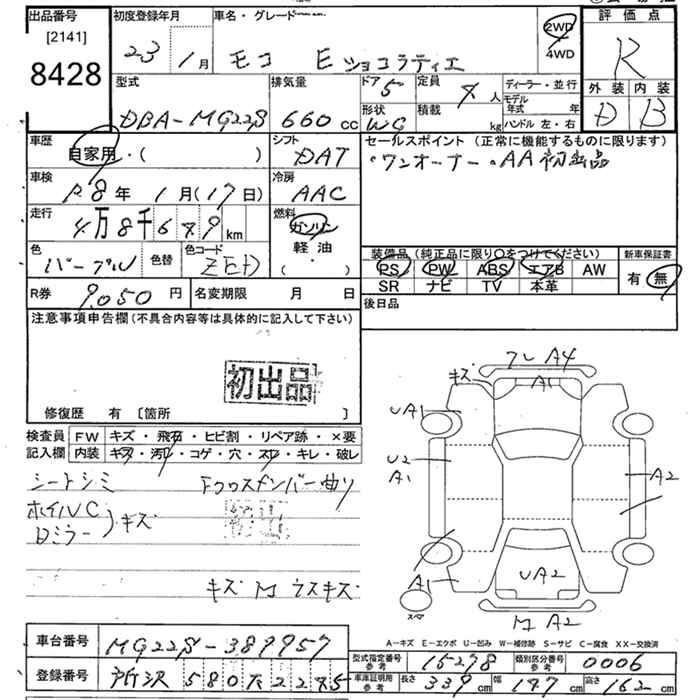 出品番号 初度登録年月 車名・グレード 2WD 評価点
[2141] 4WD
8428 23 1月 モコ E ショコラティエ R
型式 排気量 ドア 5 定員 4人 ディーラー・並行 外装 内装
DBA-MG22S 660cc 形状 WG 積載 kg モデル年式 年 D B
ハンドル 左・右
車歴 自家用・( ) シフト DAT セールスポイント (正常に機能するものに限ります)
・ワンオーナー ・AA初出品
車検 R8年 1月(17日) 冷房 AAC
走行 4万8千 km 燃料 ガソリン
軽油
( ・ )
色 パープル 色替 色コード 装備品(純正品に限り〇をつけてください) 新車保証書
PS PW ABS エアB AW 有・無
SR ナビ TV 本革
R券 9,050円 名変期限 月 日 後日品
注意事項申告欄(不具合内容等は具体的に記入して下さい)
初出品
修復歴 有 [箇所 ]
検査員 FW キズ・飛石・ヒビ割・リペア跡・×要
記入欄 内装 キズ・汚レ・コゲ・穴・スレ・キレ・破レ
シートシミ Fクロスメンバー曲り
ホイルVC
Dミラー)キズ
キズ M ウスキズ
フレA4
キズ A1
UA1
U2
A1
A2
A1
UA2
スペア
M A2
A-キズ E-エクボ U-凹み W-補修跡 S-サビ C-腐食 XX-交換済
車台番号 MG22S-389957 型式指定番号 参考 15278 類別区分番号 参考 0006
登録番号 所沢 580 2245 車庫証明用 参考 長さ 339cm 幅 147cm 高さ 162cm